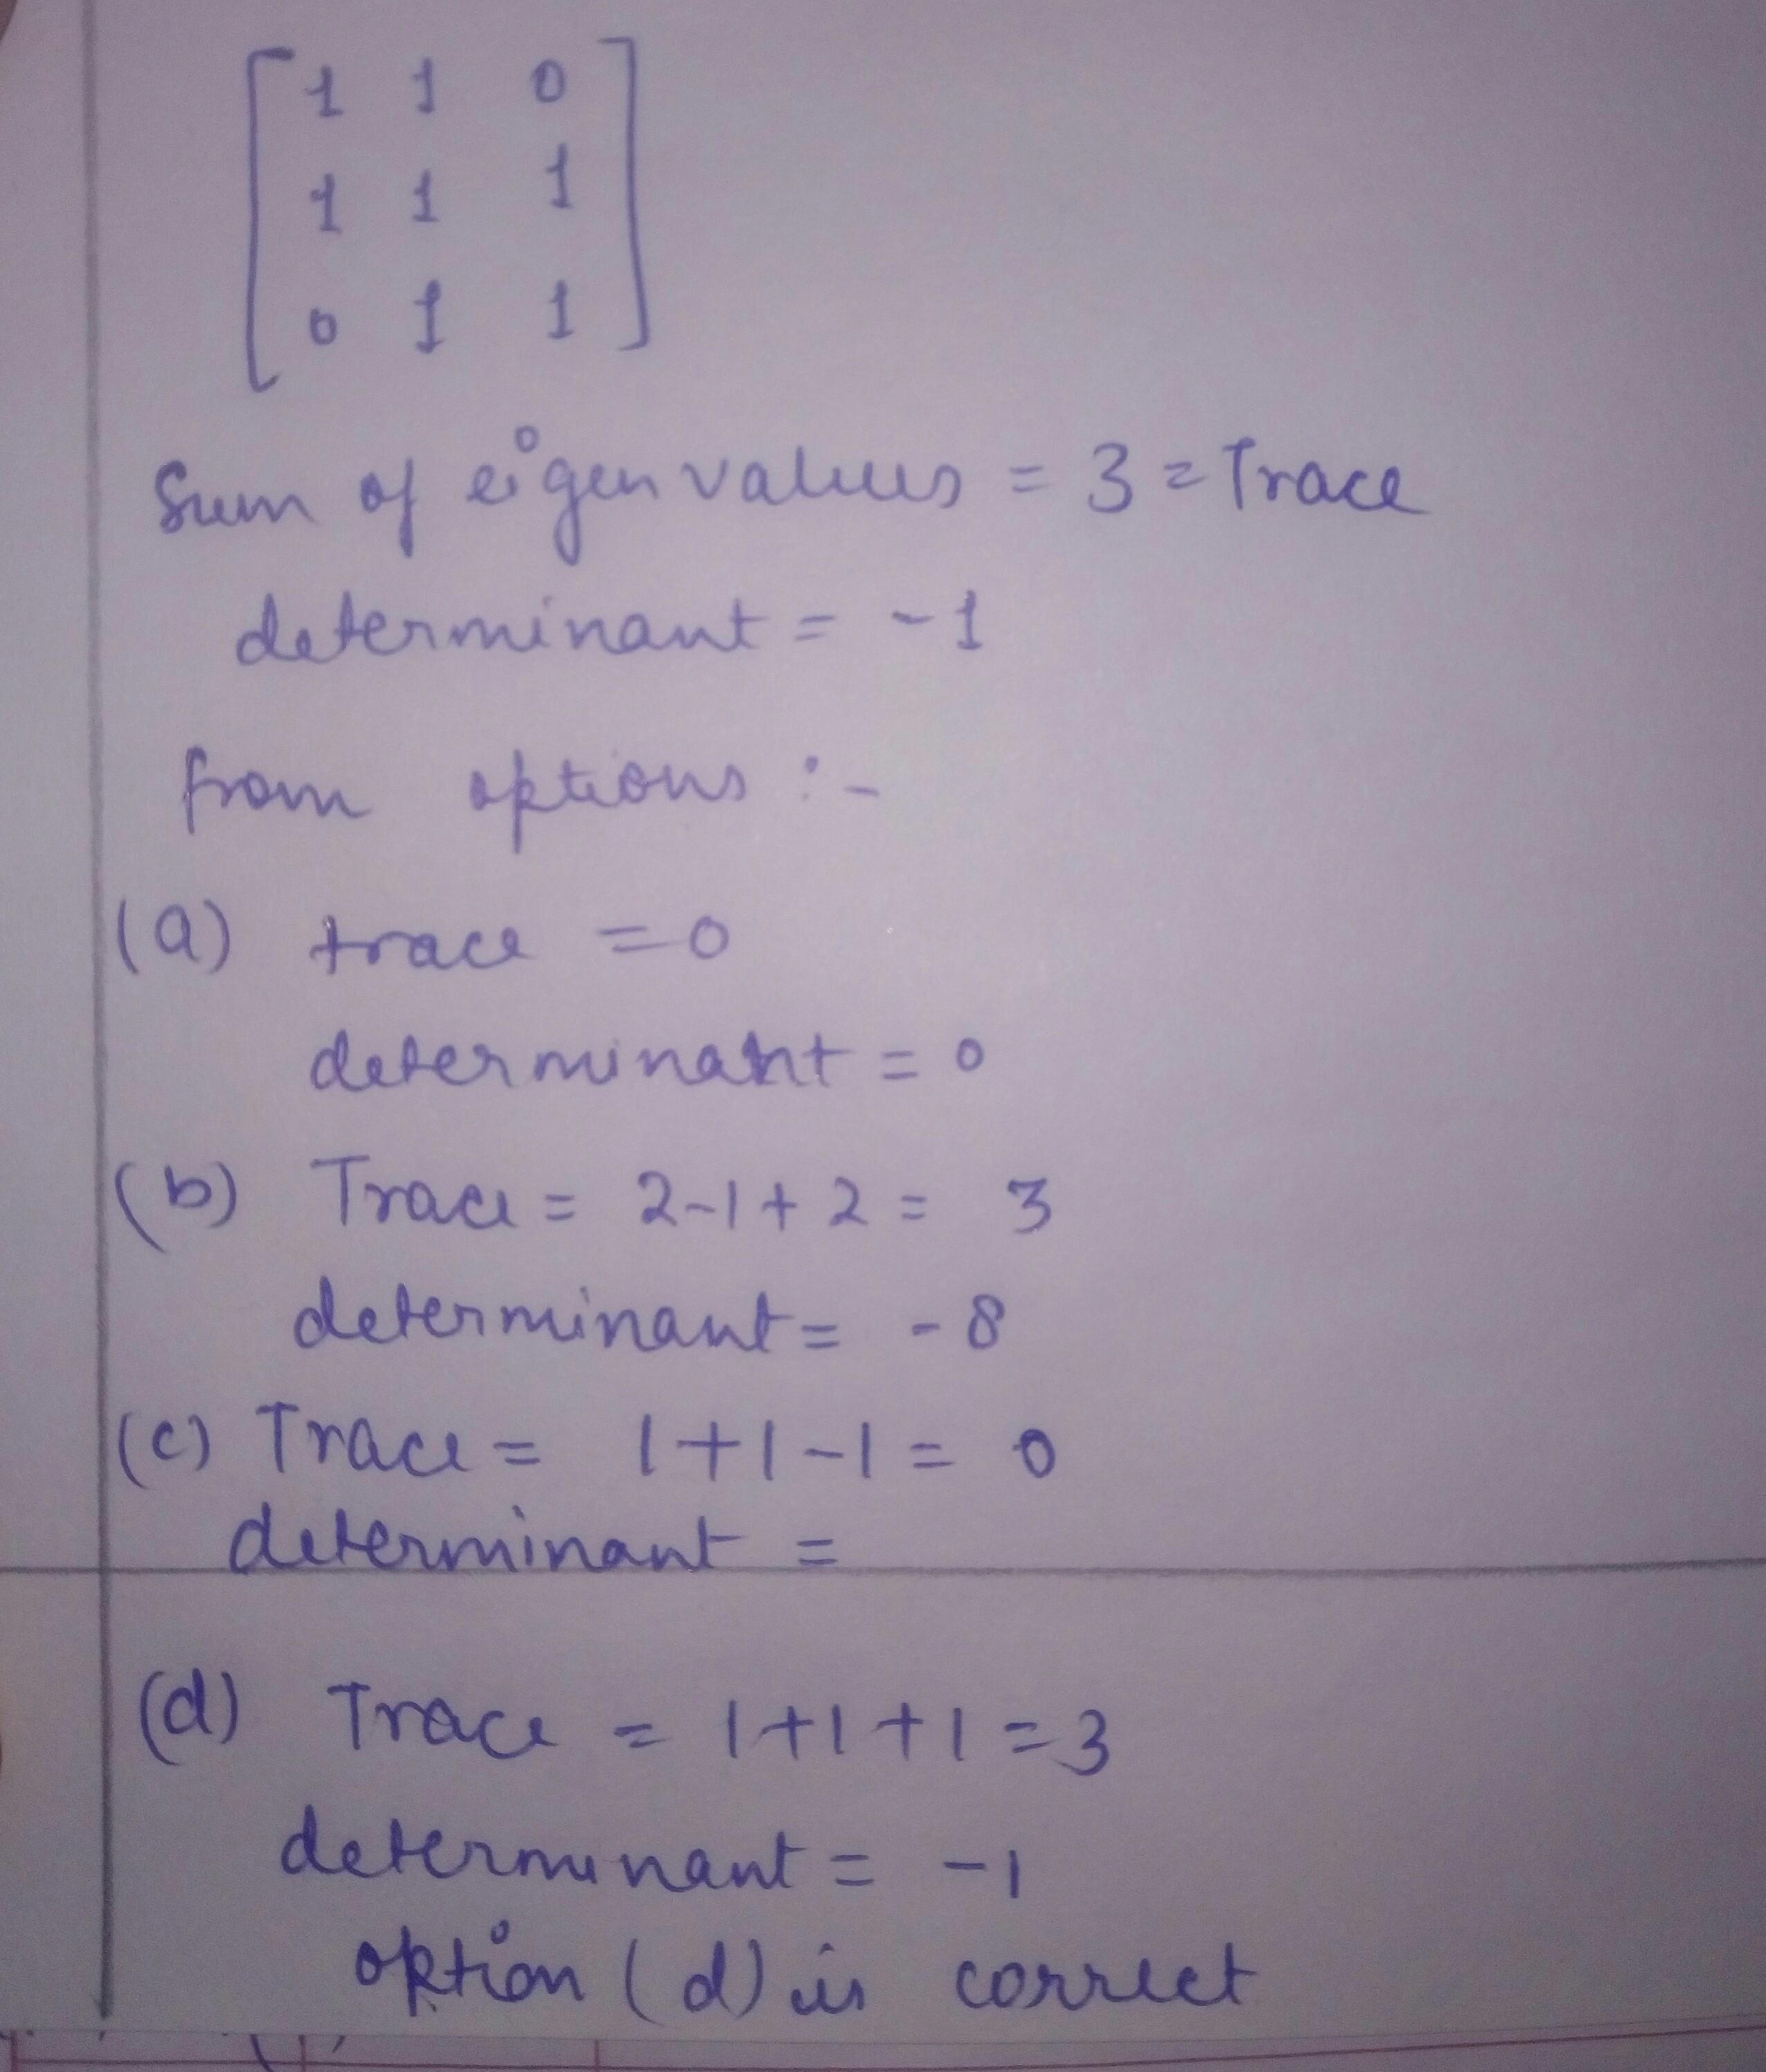 1 1 0
1 1 1
0 1 1
Sum of eigen values = 3 = Trace
determinant = -1
from options :-
(a) trace = 0
determinant = 0
(b) Trace = 2-1+2 = 3
determinant = -8
(c) Trace = 1+1-1 = 0
determinant =
(d) Trace = 1+1+1=3
determinant = -1
option (d) is correct